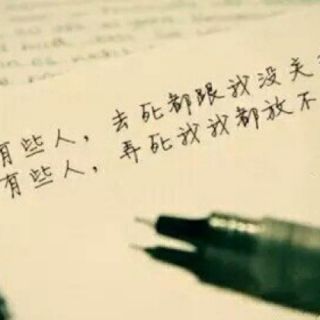 有些人，去死都跟我没关
有些人，弄死我我都放不